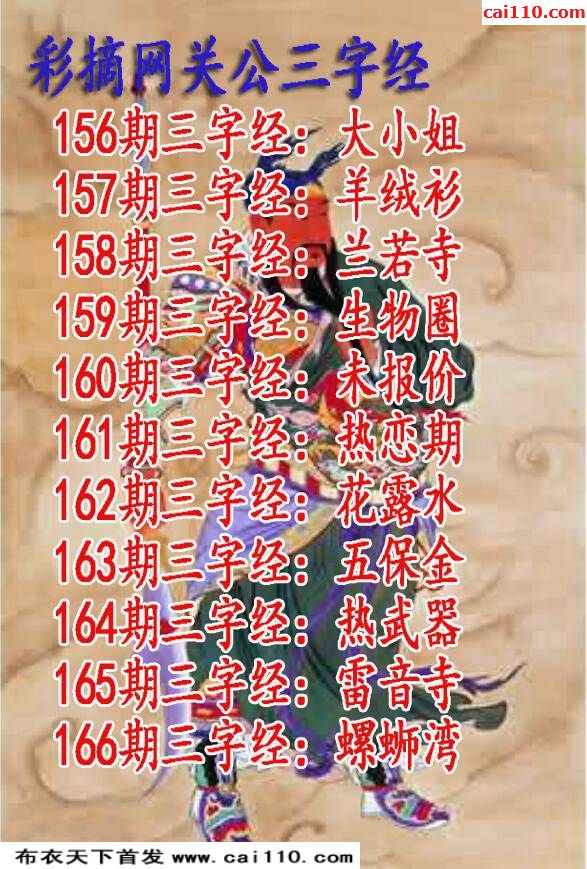 cai110.com
彩摘网关公三字经
156期三字经：大小姐
157期三字经：羊绒衫
158期三字经：兰若寺
159期三字经：生物圈
160期三字经：未报价
161期三字经：热恋期
162期三字经：花露水
163期三字经：五保金
164期三字经：热武器
165期三字经：雷音寺
166期三字经：螺蛳湾
布衣天下首发 www.cai110.com